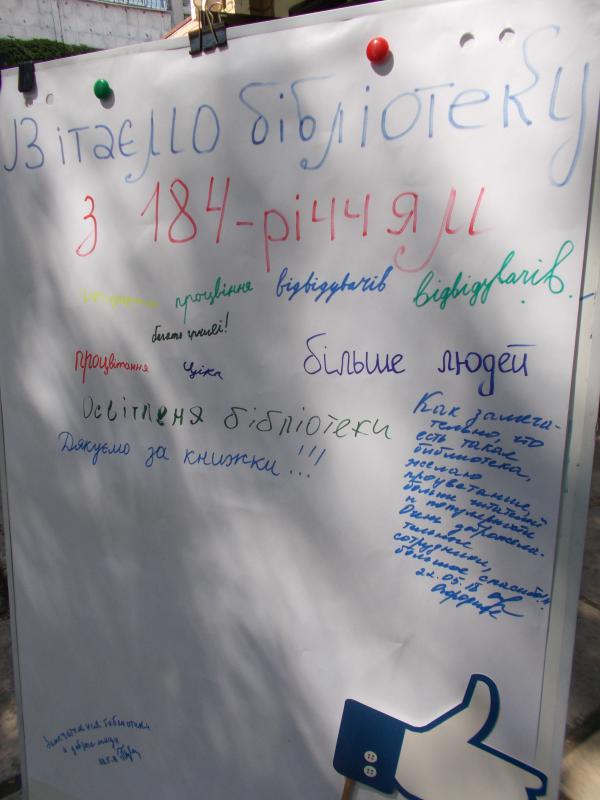 Вітаємо бібліотеку
з 184-річчям
процвіння відвідувачів відвідувачів
багато грошей!
процвітання більше людей
Освітленя бібліотеки
Дякуємо за книжки!!!
Как замеча-
тельно, что
есть такая
библиотека,
желаю
процветание,
больше читателей
и популярности
Очень доброжела-
тельные
сотрудники,
большое спасибо!!
22.05.18